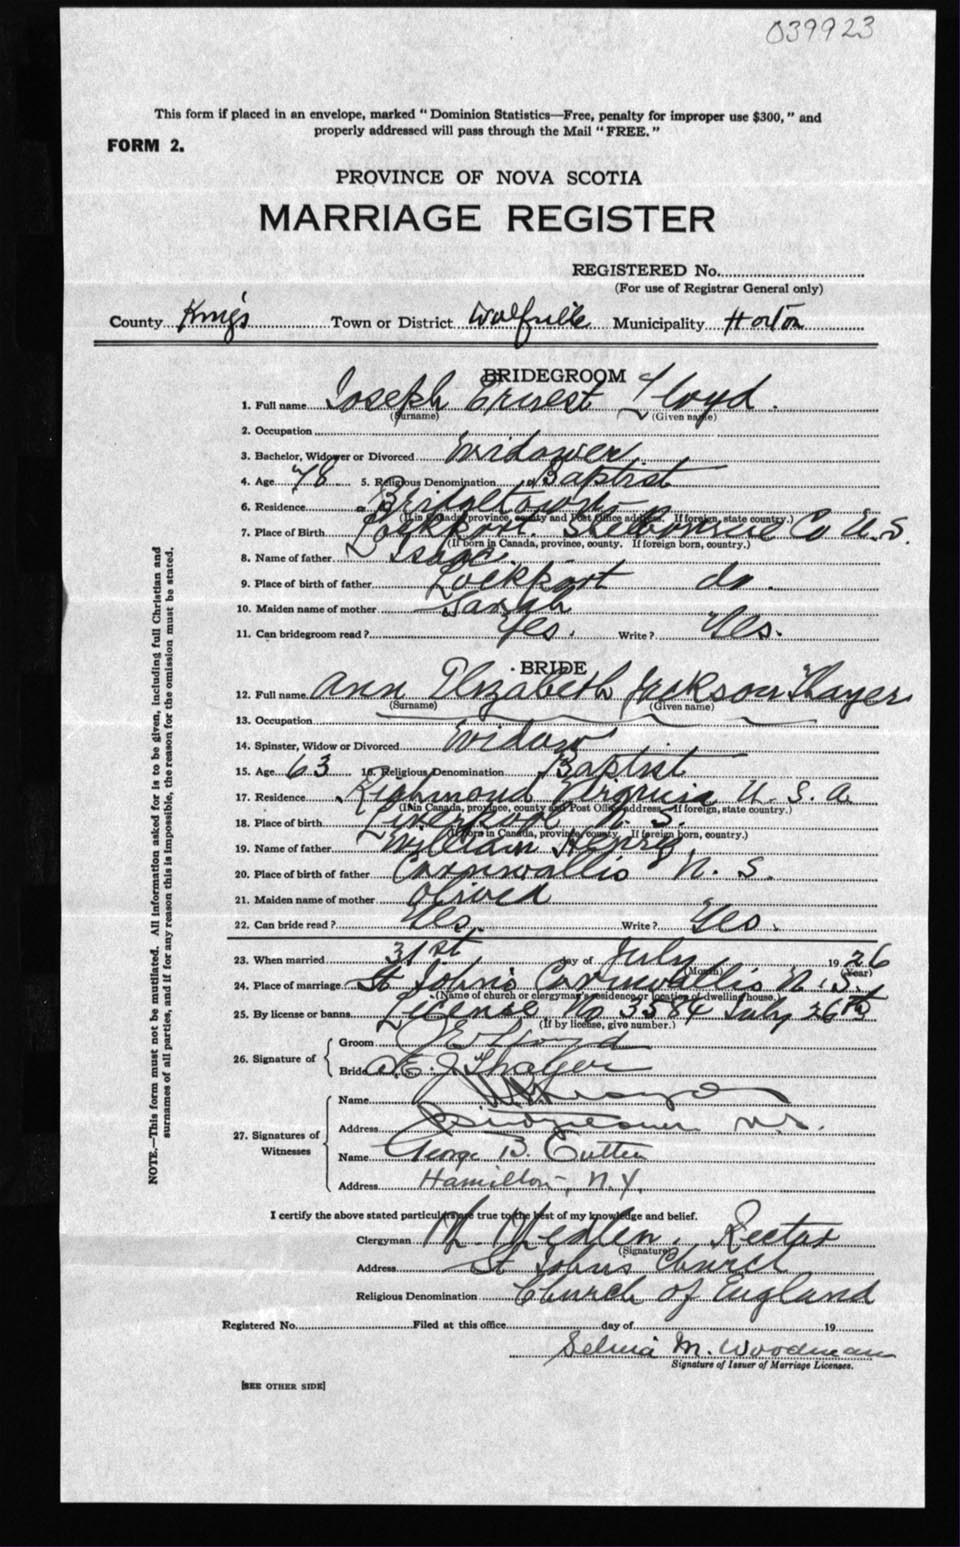 039923
This form if placed in an envelope, marked "Dominion Statistics—Free, penalty for improper use $300," and
properly addressed will pass through the Mail "FREE."
FORM 2.
PROVINCE OF NOVA SCOTIA
MARRIAGE REGISTER
REGISTERED No.
(For use of Registrar General only)
County King's Town or District Wolfville Municipality Horton
BRIDEGROOM
1. Full name Joseph Ernest Lloyd.
(Surname) (Given name)
2. Occupation
3. Bachelor, Widower or Divorced Widower
4. Age 78 5. Religious Denomination Baptist
6. Residence Bridgetown
(If in Canada, province, county and Post Office address. If foreign, state country.)
7. Place of Birth Lockport. Shelburne Co N.S.
(If born in Canada, province, county. If foreign born, country.)
8. Name of father Isaac.
9. Place of birth of father Lockport do.
10. Maiden name of mother Sarah
11. Can bridegroom read? Yes. Write? Yes.
BRIDE
12. Full name Ann Elizabeth Jackson Thayer
(Surname) (Given name)
13. Occupation
14. Spinster, Widow or Divorced Widow
15. Age 63 16. Religious Denomination Baptist
17. Residence Richmond Virginia U. S. A.
(If in Canada, province, county and Post Office address, if foreign, state country.)
18. Place of birth Liverpool N. S.
(If born in Canada, province, county. If foreign born, country.)
19. Name of father William Henry.
20. Place of birth of father Cornwallis N. S.
21. Maiden name of mother Olived
22. Can bride read? Yes. Write? Yes.
23. When married 31st day of July 1926
(Month) (Year)
24. Place of marriage St John's Cornwallis N. S.
(Name of church or clergyman's residence or location of dwelling house.)
25. By license or banns License No 3584 July 26th
(If by license, give number.)
26. Signature of Groom J E Lloyd
Bride A. E. J. Thayer
27. Signatures of Witnesses
Name
Address N.S.
Name George B. Cutten
Address Hamilton, N.Y.
I certify the above stated particulars are true to the best of my knowledge and belief.
Clergyman Rector
(Signature)
Address St Johns Church
Religious Denomination Church of England
Registered No. Filed at this office day of 19
M. Woodman
Signature of Issuer of Marriage Licenses.
[SEE OTHER SIDE]
NOTE.—This form must not be mutilated. All information asked for is to be given, including full Christian and
surnames of all parties, and if for any reason this is impossible, the reason for the omission must be stated.